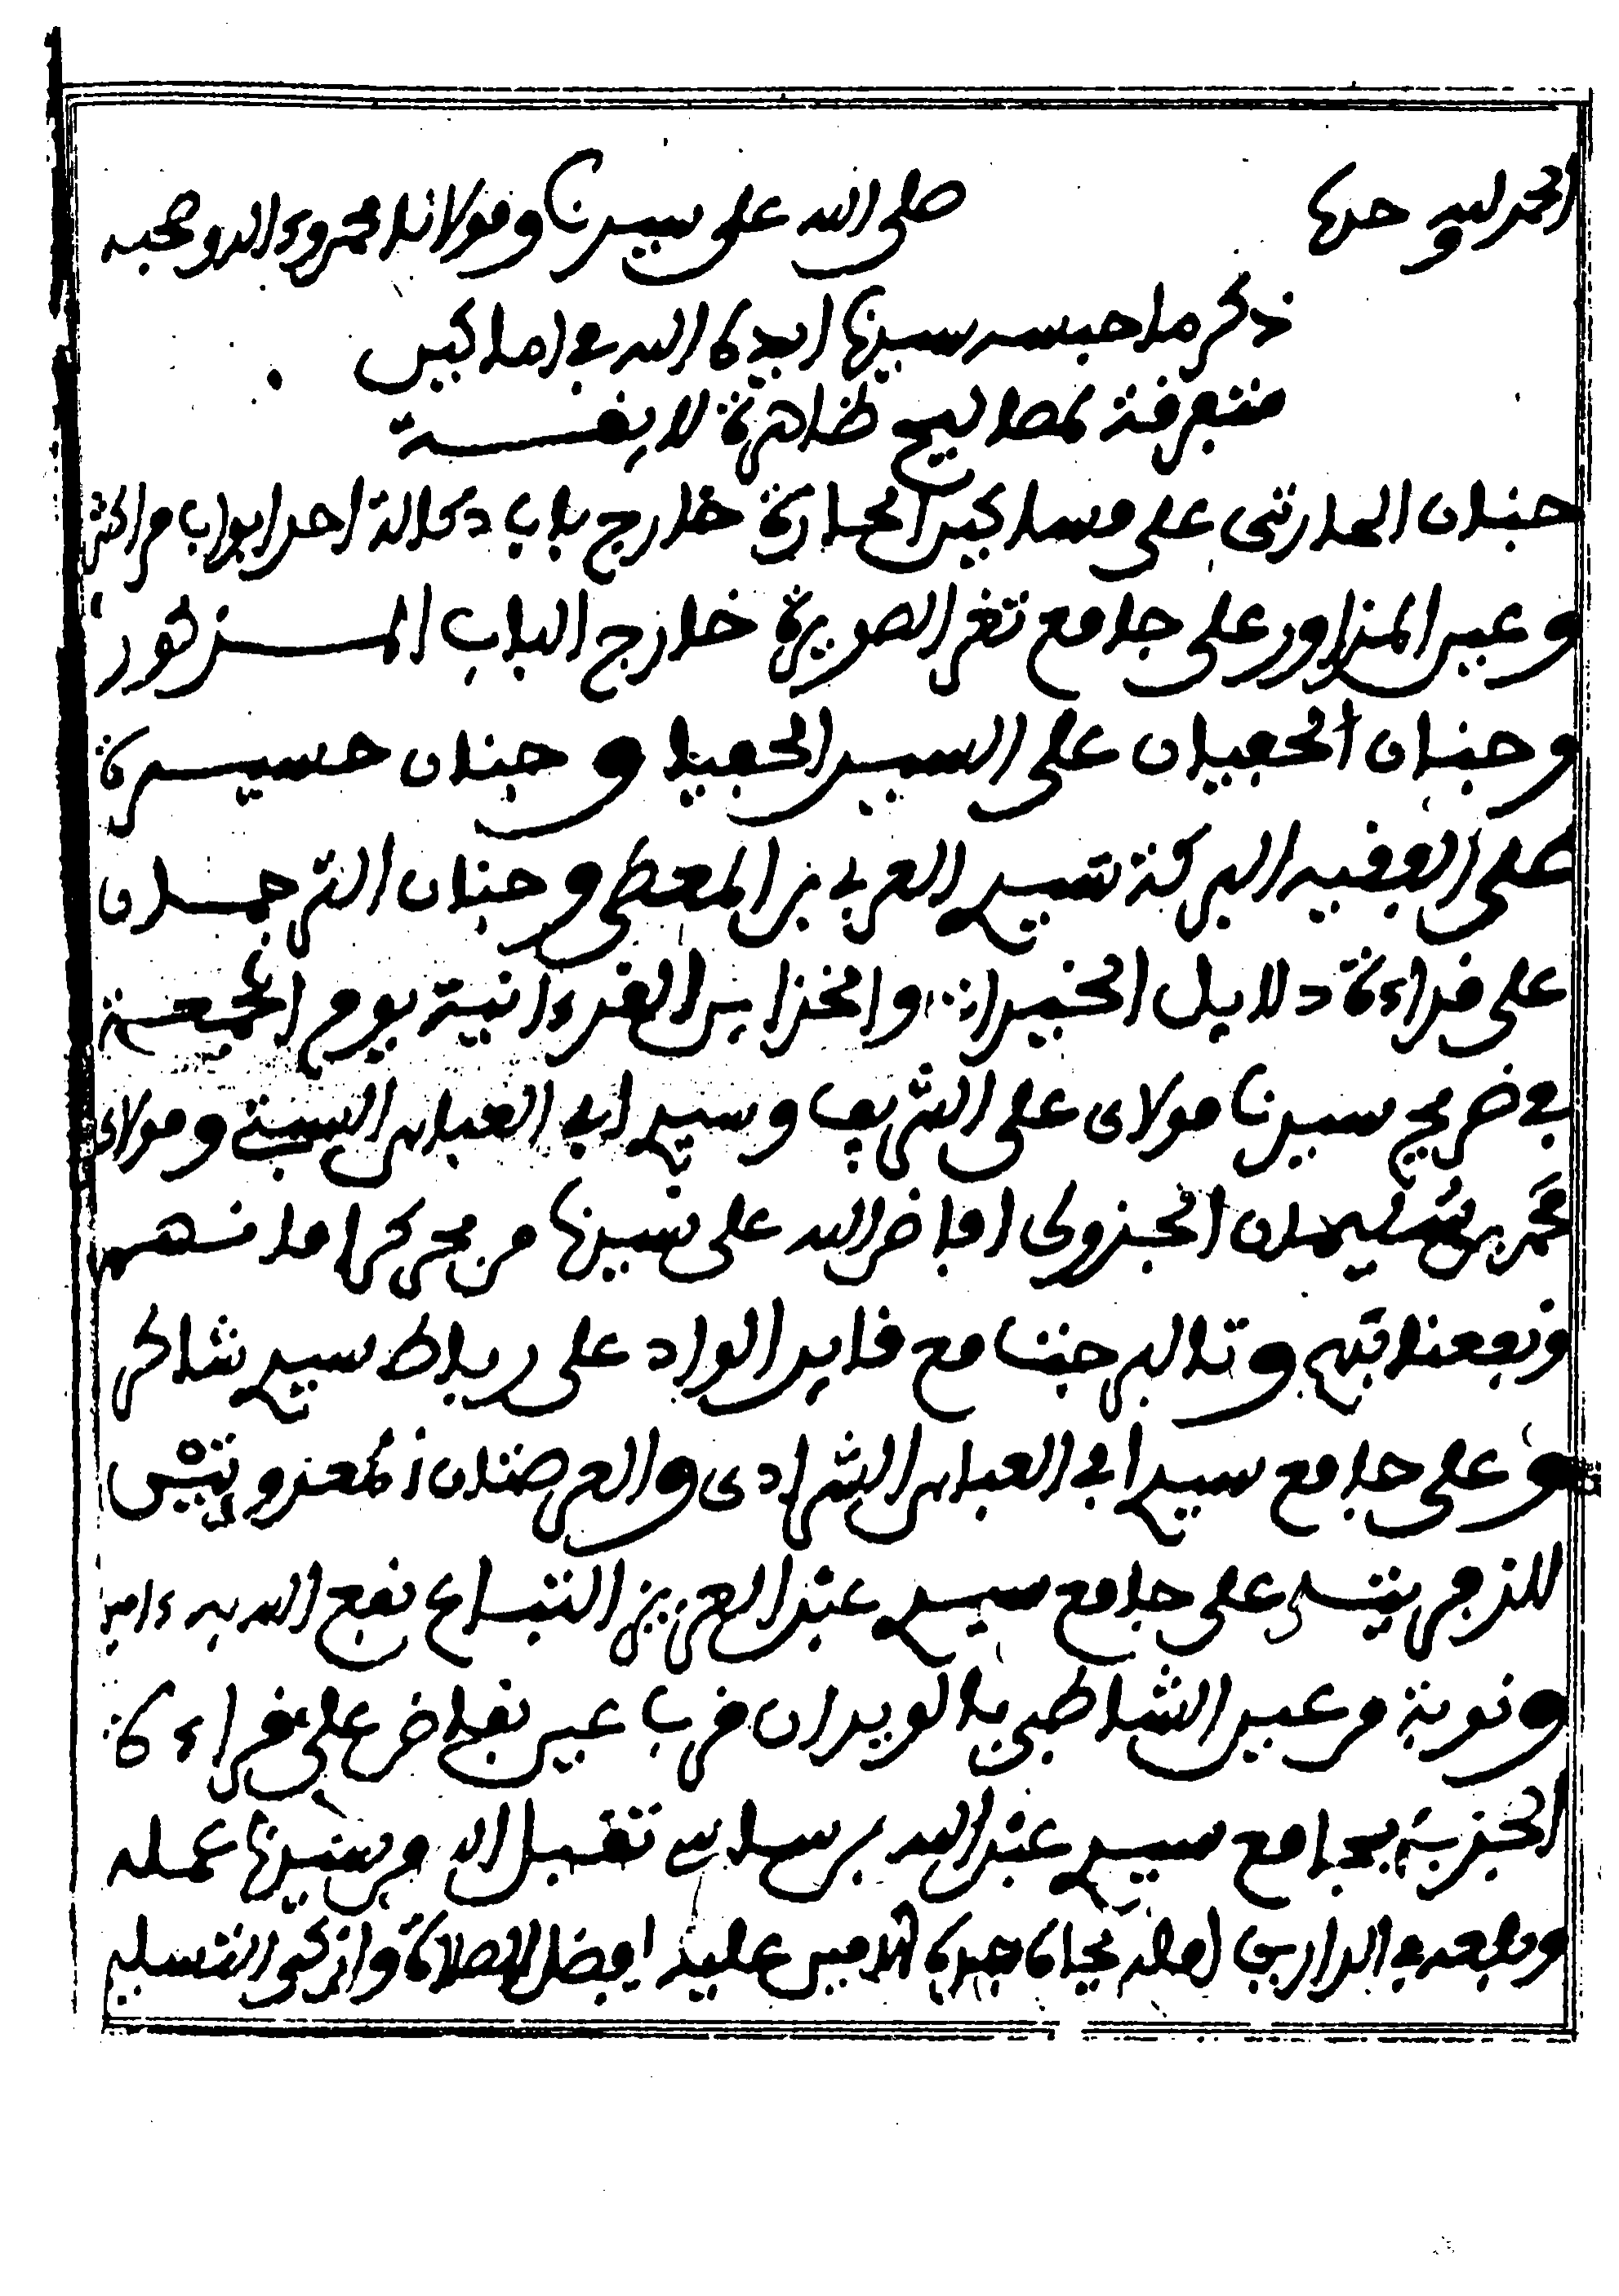 الحمد لله وحده صلى الله على سيدنا ومولانا محمد وءاله وصحبه
ذكر ما حبسه سيدنا ايده الله في اماكين
متفرفة لمصاليح ظاهرة لايفة
جنان الحارثي على مساكين الحارة خارج باب دكالة احد ابواب مراكش
وعين المزاور على جامع ثغر الصويرة خارج الباب المذكور
وجنان الجفيان على السيد الجفيا وجنان حسيرة
على الففيه البركة سيدي العربي بن المعطى وجنان الترجمان
على فراءة دلايل الخيرات والاحزاب الفرءانية يوم الجمعة
في ضريح سيدنا مولاى على الشريف وسيدي ابي العباس السبتي ومولاى
محمد بن سليمان الجزولى افاض الله على سيدنا من بحر كراماتهم
ونفعنا بهم وتالبرجنت مع فايد الواد على رباط سيدي شاكر
وعلى جامع سيدي ابي العباس الشرادى والعرصتان المعزوتين
للزمريتى على جامع سيدي عبد العزيز التباع نفع الله به ءامين
ونوبة من عين الشاطبى بالويدان فرب عين نفاض على فراءة
الحزب بجامع سيدي عبد الله بن ساسي تفبل الله من سيدنا عمله
وبلغه في الدارين امله بجاه جده الامين عليه افضل الصلاة وازكى التسليم